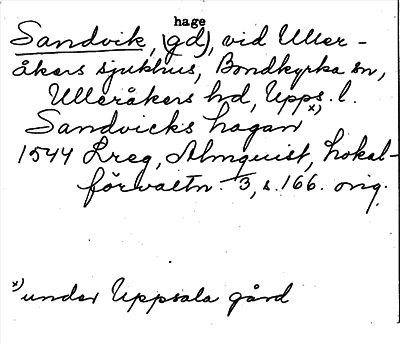 hage
Sandvik, (gd), vid Uller-
åkers sjukhus, Bondkyrka sn,
Ulleråkers hd, Upps. l.
Sandvicks hagan x)
1544 Lreg, Almquist, Lokal-
förvaltn. 1/3, s. 166. orig.
x) under Uppsala gård